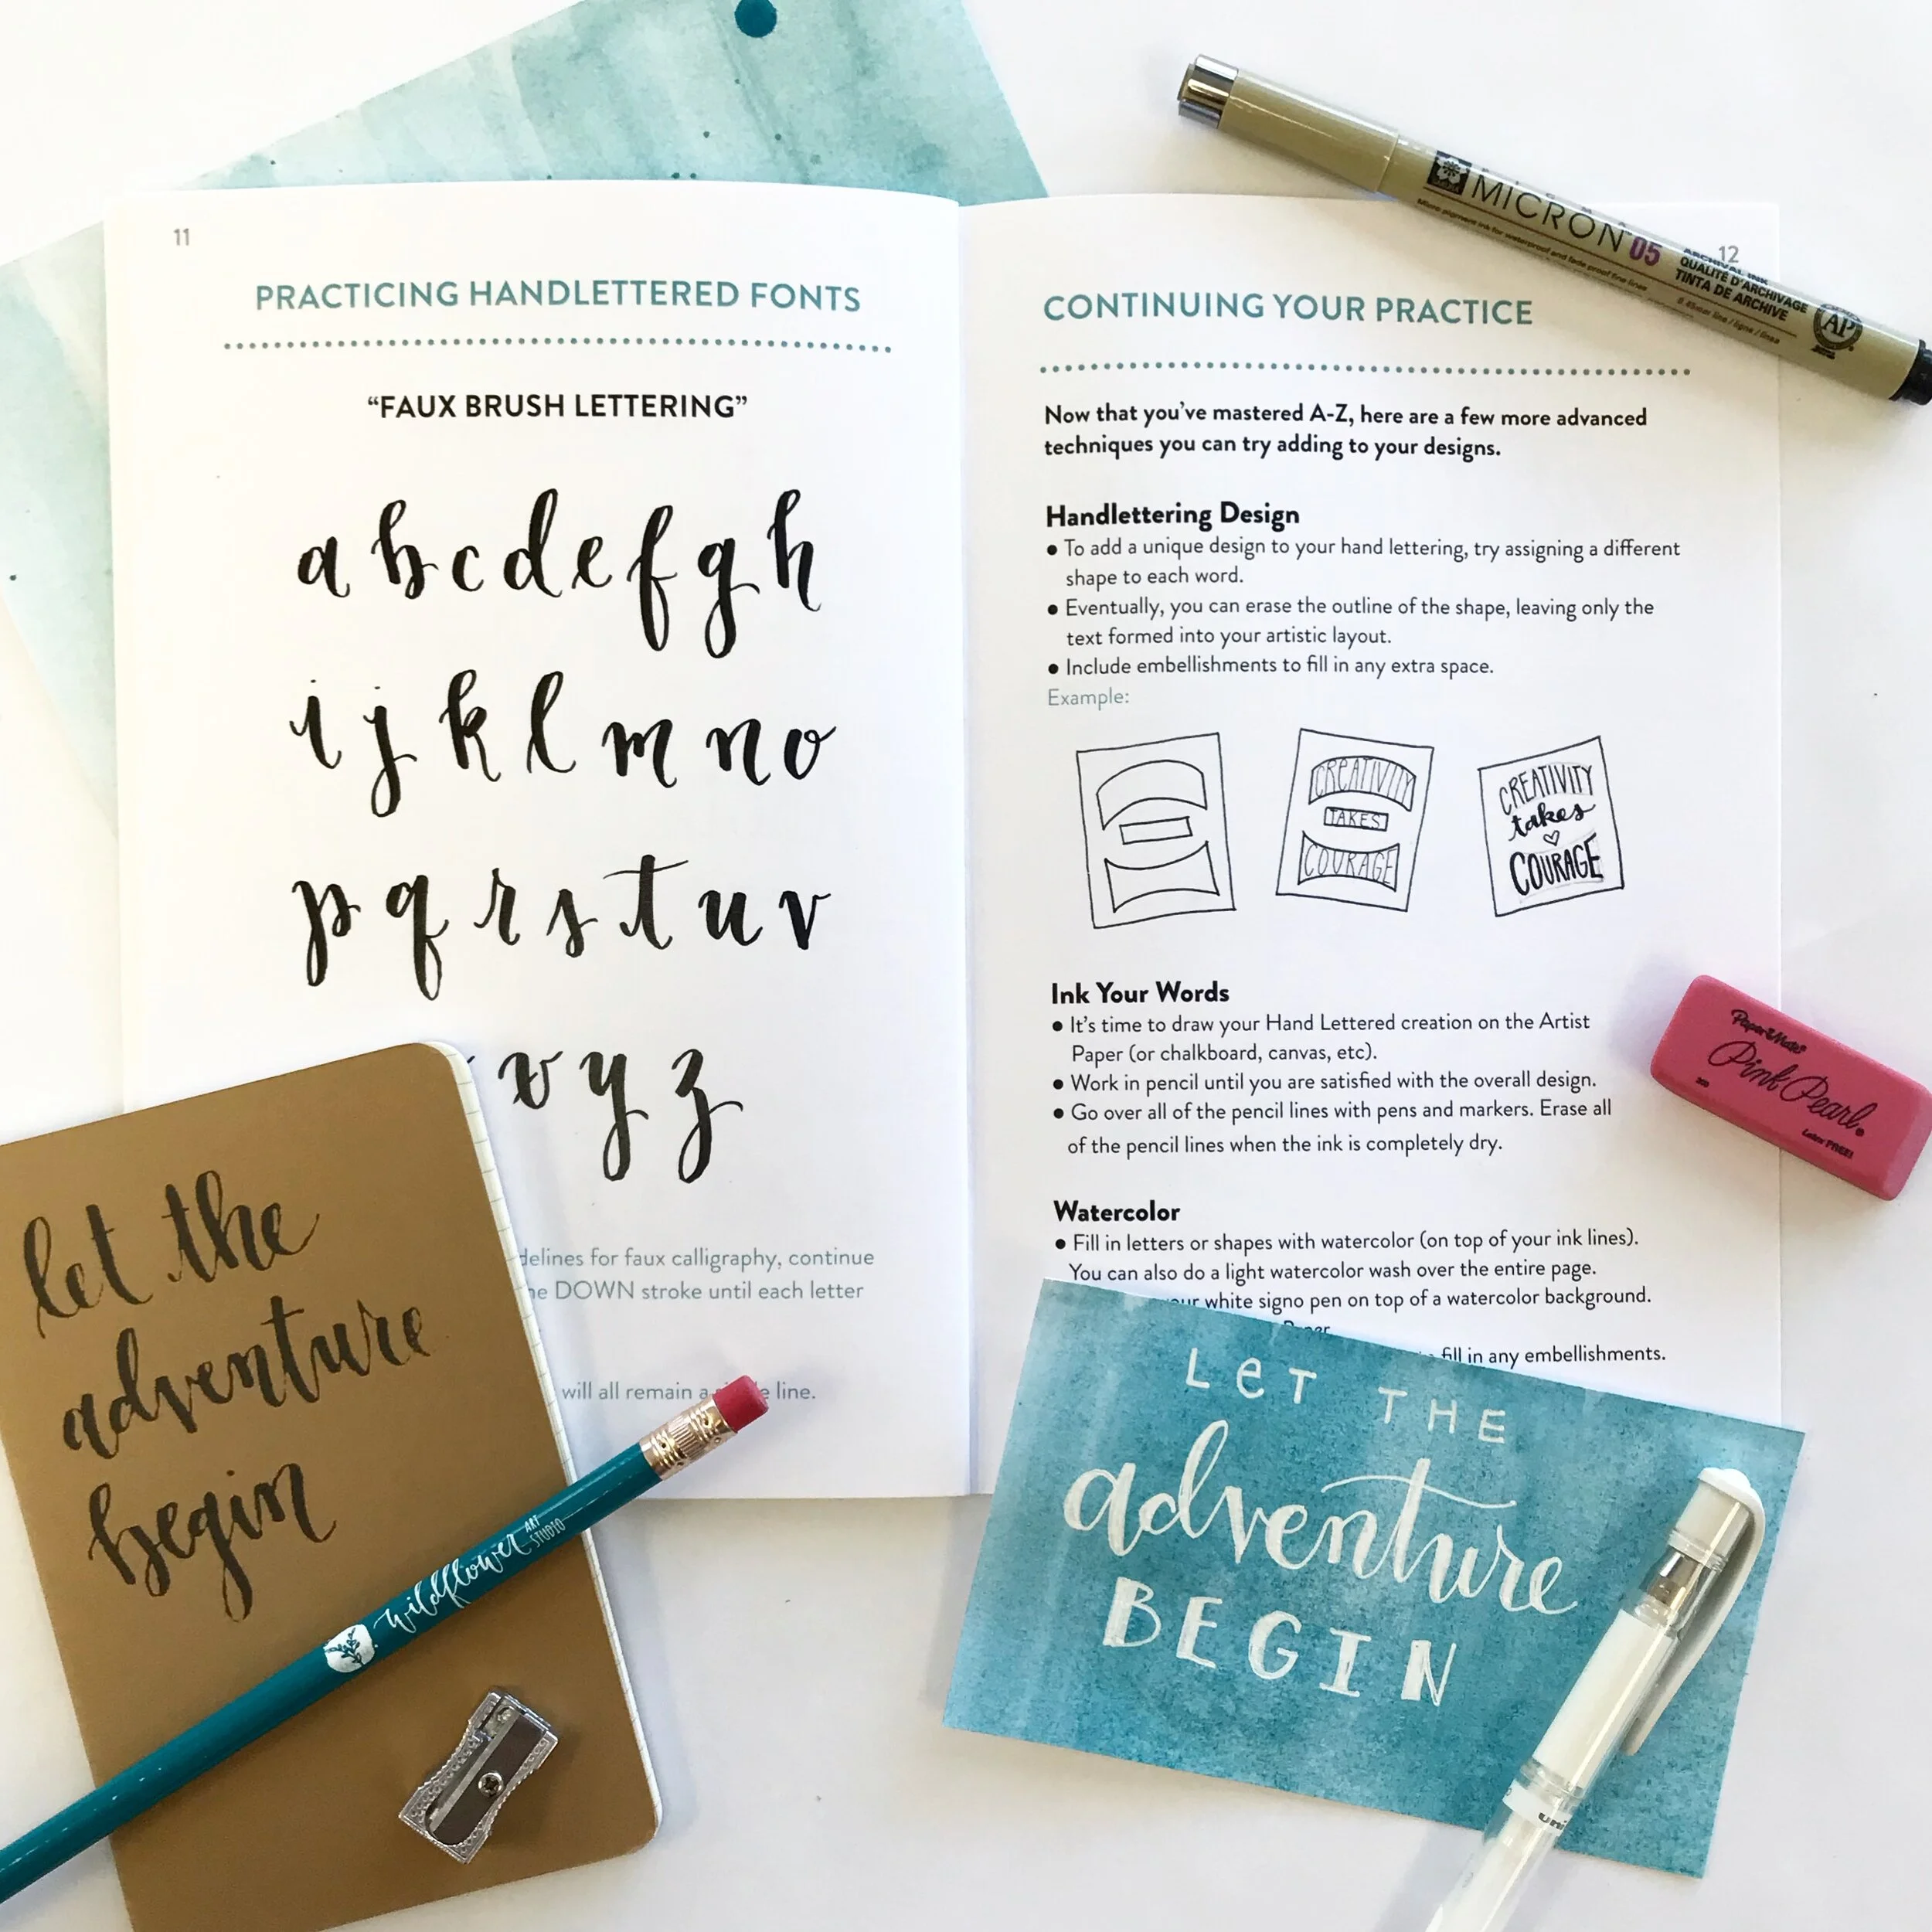 11
PRACTICING HANDLETTERED FONTS
“FAUX BRUSH LETTERING”
a b c d e f g h
i j k l m n o
p q r s t u v
x y z
delines for faux calligraphy, continue
he DOWN stroke until each letter
will all remain a line.
12
CONTINUING YOUR PRACTICE
Now that you’ve mastered A-Z, here are a few more advanced
techniques you can try adding to your designs.
Handlettering Design
● To add a unique design to your hand lettering, try assigning a different
shape to each word.
● Eventually, you can erase the outline of the shape, leaving only the
text formed into your artistic layout.
● Include embellishments to fill in any extra space.
Example:
CREATIVITY
TAKES
COURAGE
CREATIVITY
takes
COURAGE
Ink Your Words
● It’s time to draw your Hand Lettered creation on the Artist
Paper (or chalkboard, canvas, etc).
● Work in pencil until you are satisfied with the overall design.
● Go over all of the pencil lines with pens and markers. Erase all
of the pencil lines when the ink is completely dry.
Watercolor
● Fill in letters or shapes with watercolor (on top of your ink lines).
You can also do a light watercolor wash over the entire page.
our white signo pen on top of a watercolor background.
Paper
fill in any embellishments.
MICRON 05
Micro pigment ink for waterproof and fade proof fine lines
ARCHIVAL INK
QUALITÉ D'ARCHIVAGE
TINTA DE ARCHIVE
0.45mm line / ligne / linea
AP
Paper Mate
Pink Pearl
Latex FREE!
let the
adventure
begin
wildflower ART
STUDIO
LeT THE
adventure
BEGIN
uni